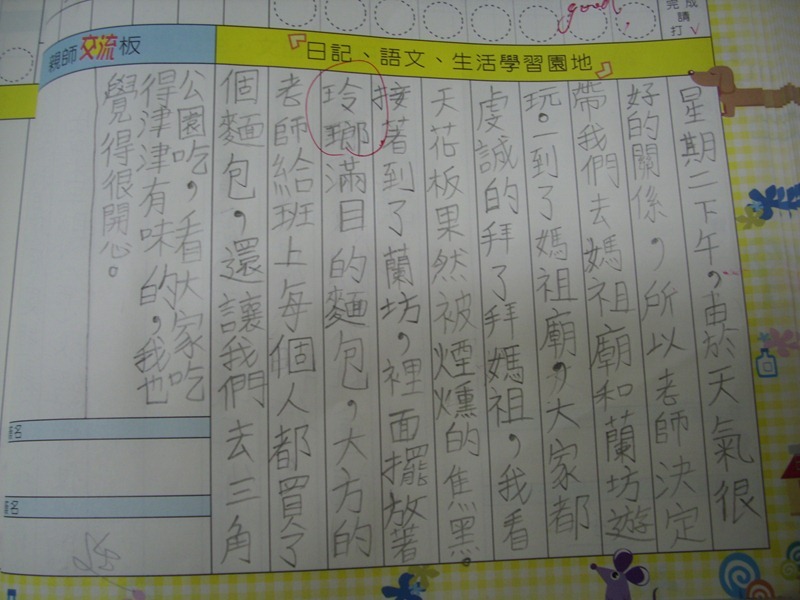 good
完成
請
打✓
『日記、語文、生活學習園地』
親師交流板
星期二下午，由於天氣很
好的關係，所以老師決定
帶我們去媽祖廟和蘭坊遊
玩。一到了媽祖廟，大家都
虔誠的拜了拜媽祖，我看
天花板果然被煙燻的焦黑。
接著到了蘭坊，裡面擺放著
玲瑯滿目的麵包，大方的
老師給班上每個人都買了
個麵包，還讓我們去三角
公園吃，看大家吃
得津津有味的，我也
覺得很開心。
名
名